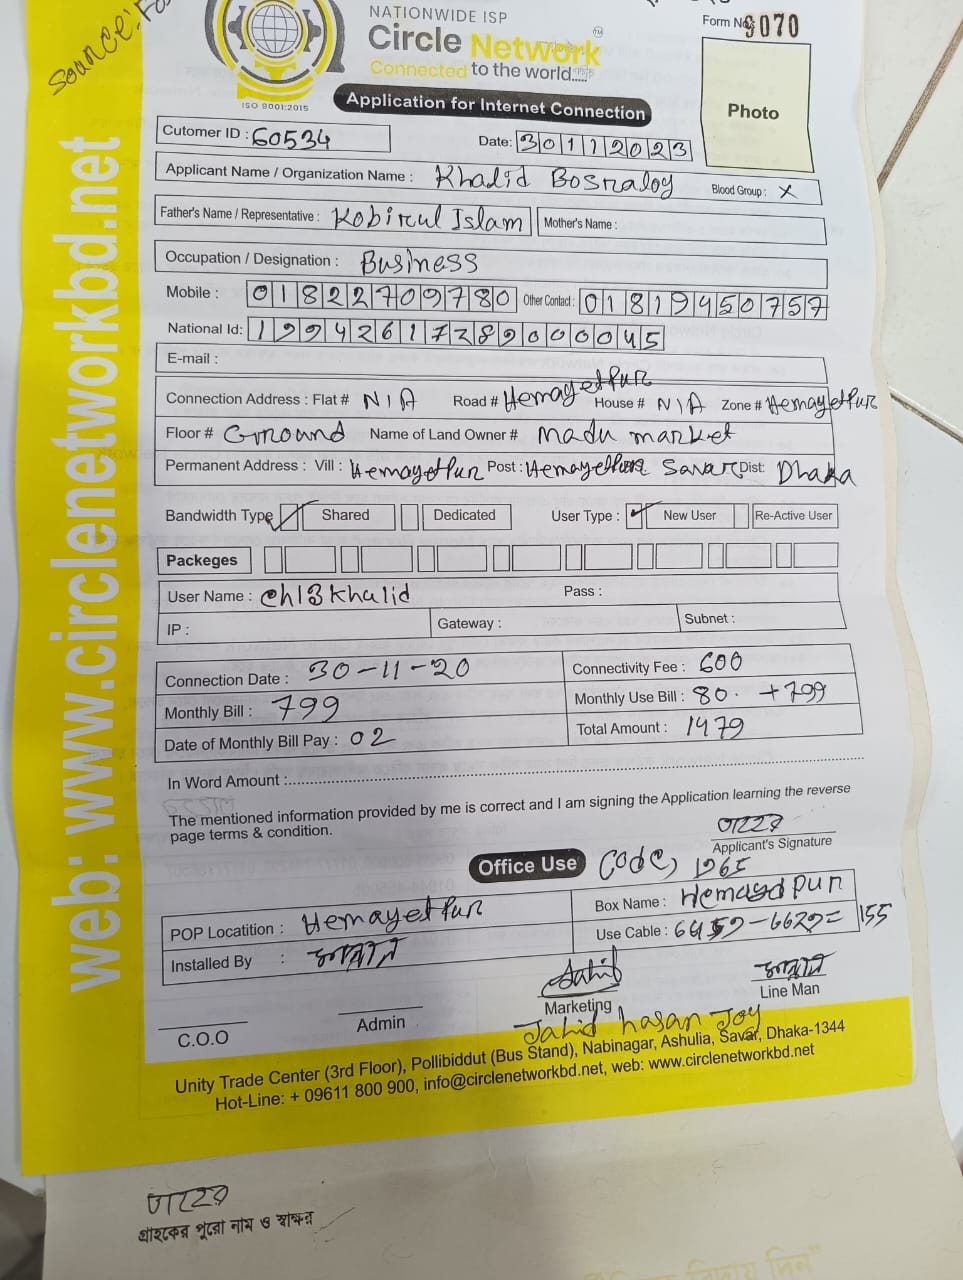 Seance: Fo
NATIONWIDE ISP
Form No. 9070
Circle Network
Connected to the world.....
ISO 9001:2015
Application for Internet Connection
Photo
Cutomer ID : 60534
Date: 30112023
Applicant Name / Organization Name : Khalid Bosraloy Blood Group : X
Father's Name / Representative : Kobirul Islam Mother's Name :
Occupation / Designation : Business
Mobile : 01822709780 Other Contact : 01819450757
National Id: 19942617289000045
E-mail :
Connection Address : Flat # N/A Road # Hemayetpur House # N/A Zone # Hemayetpur
Floor # Ground Name of Land Owner # Madu market
Permanent Address : Vill : Hemayetpur Post : Hemayetpur Savar Dist: Dhaka
Bandwidth Type ✓ Shared Dedicated User Type : ✓ New User Re-Active User
Packeges
User Name : ch13khalid Pass :
IP : Gateway : Subnet :
Connection Date : 30-11-20 Connectivity Fee : 600
Monthly Bill : 799 Monthly Use Bill : 80. +799
Date of Monthly Bill Pay : 02 Total Amount : 1479
In Word Amount :
The mentioned information provided by me is correct and I am signing the Application learning the reverse
page terms & condition.
Applicant's Signature
Office Use Code, 1965
POP Locatition : Hemayetpur Box Name : Hemayedpur
Installed By : Use Cable : 6459-6629= 155
Marketing Line Man
C.O.O Admin Jahid hasan Joy
Unity Trade Center (3rd Floor), Pollibiddut (Bus Stand), Nabinagar, Ashulia, Savar, Dhaka-1344
Hot-Line: + 09611 800 900, info@circlenetworkbd.net, web: www.circlenetworkbd.net
web: www.circlenetworkbd.net
গ্রাহকের পুরো নাম ও স্বাক্ষর